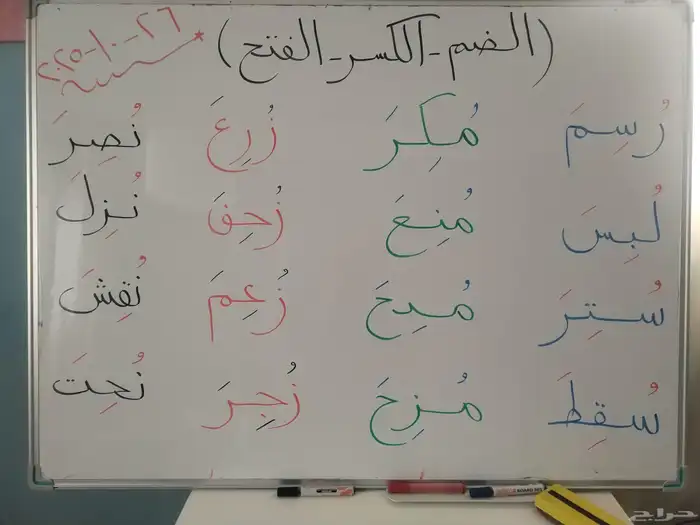 (الضم-الكسر-الفتح)
٢٦-١٠-٢٠٢٥
رُسِمَ مُكِرَ زُرِعَ نُصِرَ
لُبِسَ مُنِعَ زُحِفَ نُزِلَ
سُتِرَ مُدِحَ زُعِمَ نُقِشَ
سُقِطَ مُزِحَ زُجِرَ نُحِتَ
حراج